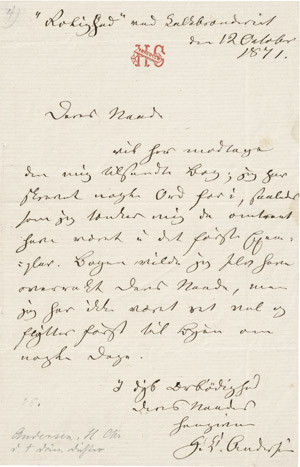 "Rolighed" ved Kalkbrænderiet
den 12 October
1871.
HS
Deres Naade
vil her modtage
den mig tilsendte Bog; jeg har
skrevet nogle Ord for i, saaledes
som jeg tænker mig de omtrent
have været i det første Exem-
plar. Bogen vilde jeg selv have
overrakt Deres Naade, men
jeg har ikke været vel og
flytter først til Byen om
nogle Dage.
I dyb Ærbødighed
Deres Naades
hengivne
H. C. Andersen
Andersen, H. Chr.
d. Dichter